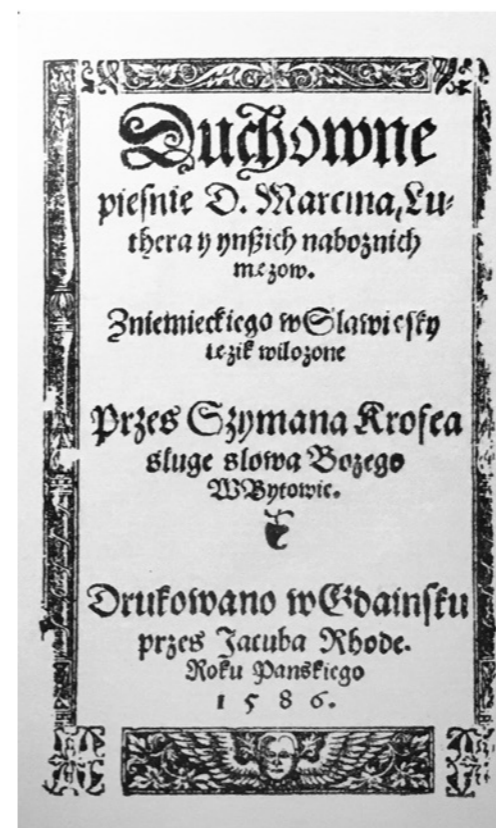 Duchowne
piesnie D. Marcina, Lu⸗
thera y ynßich nabożnich
mężow.
Zniemieckiego w Slawiesky
ięzik wilożone
Przes Szymana Krofea
sluge slowa Bożego
W Bytowie.
Drukowano w Gdainsku
przes Jacuba Rhode.
Roku Panskiego
1586.